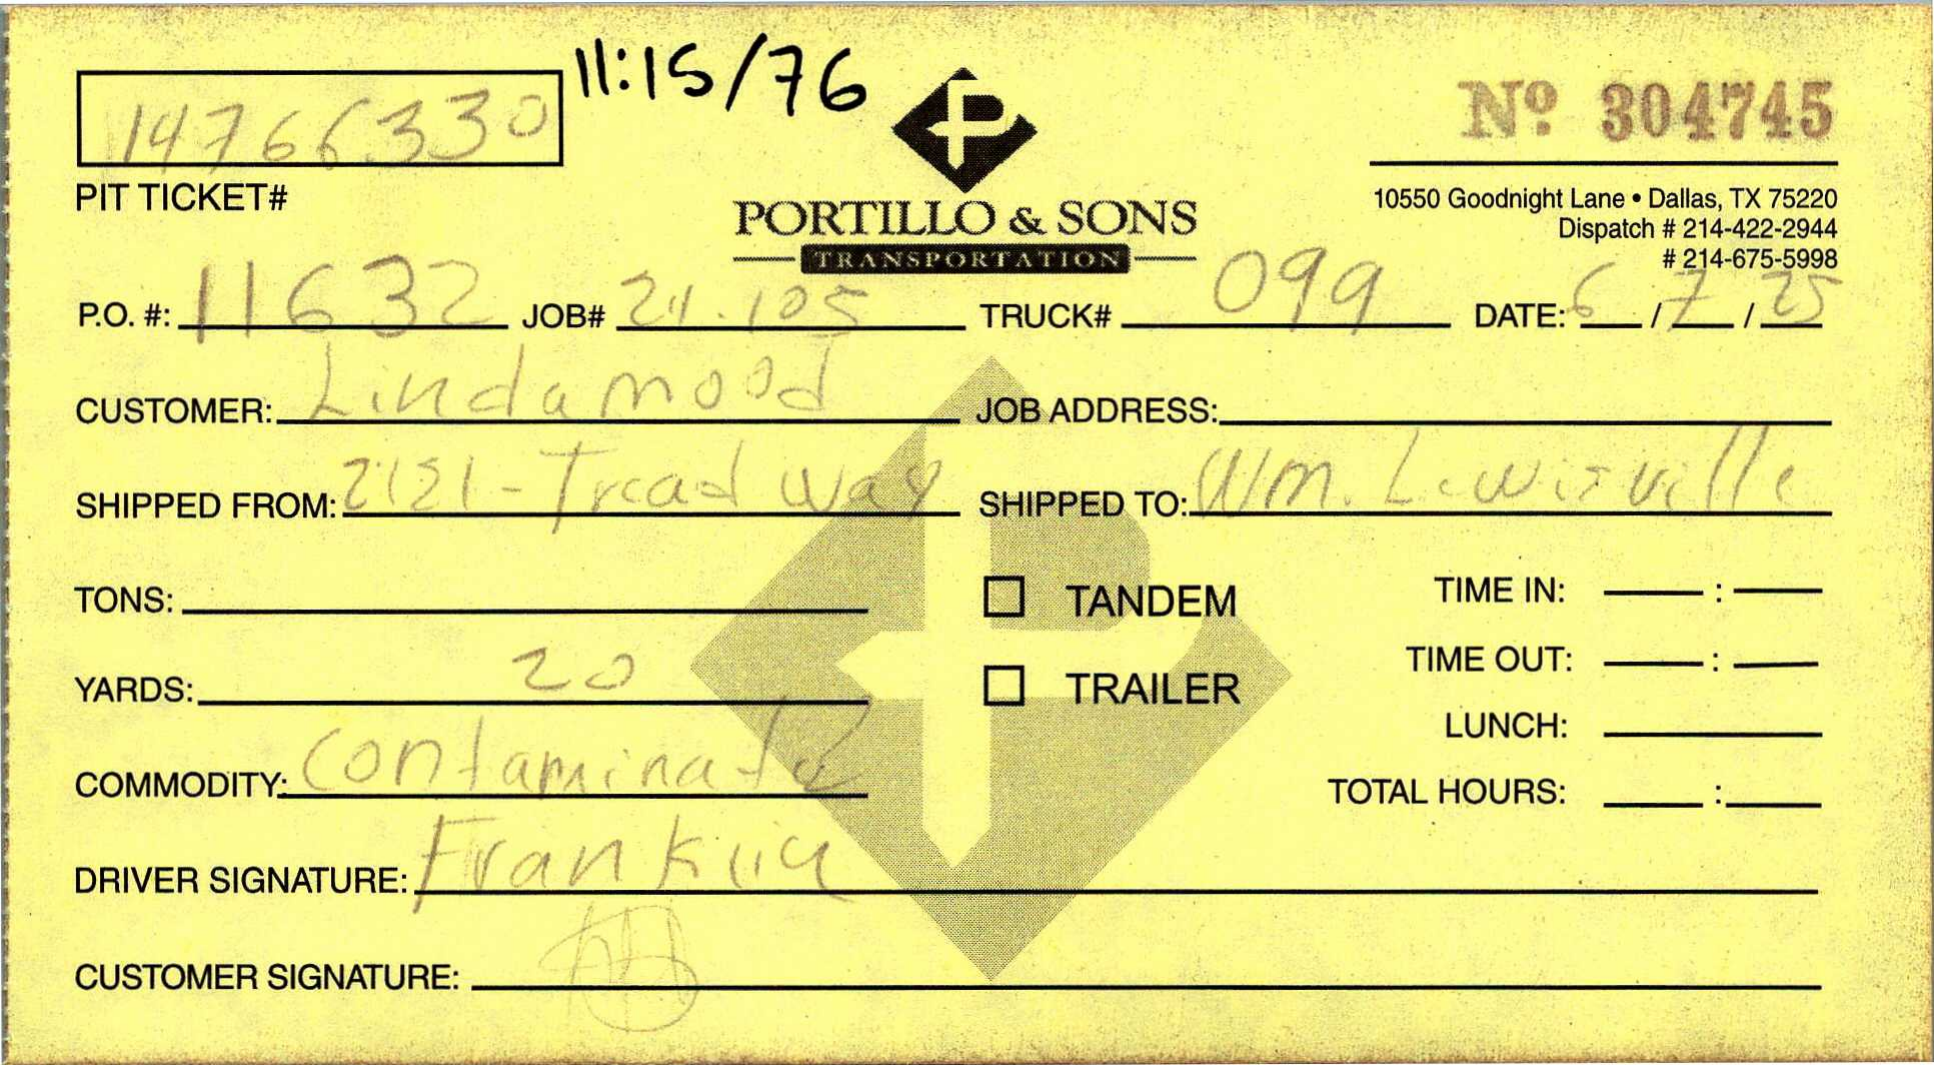 11:15/76
14766330
PIT TICKET#
Nº 304745
PORTILLO & SONS
TRANSPORTATION
10550 Goodnight Lane • Dallas, TX 75220
Dispatch # 214-422-2944
# 214-675-5998
P.O. #: 11632 JOB# 24.105 TRUCK# 099 DATE: 6/7/25
CUSTOMER: Lindamood JOB ADDRESS:
SHIPPED FROM: 2121-Tread way SHIPPED TO: WM. Lewisville
TONS: TANDEM TIME IN: :
YARDS: 20 TRAILER TIME OUT: :
LUNCH:
COMMODITY: contaminate TOTAL HOURS: :
DRIVER SIGNATURE: Franklin
CUSTOMER SIGNATURE: